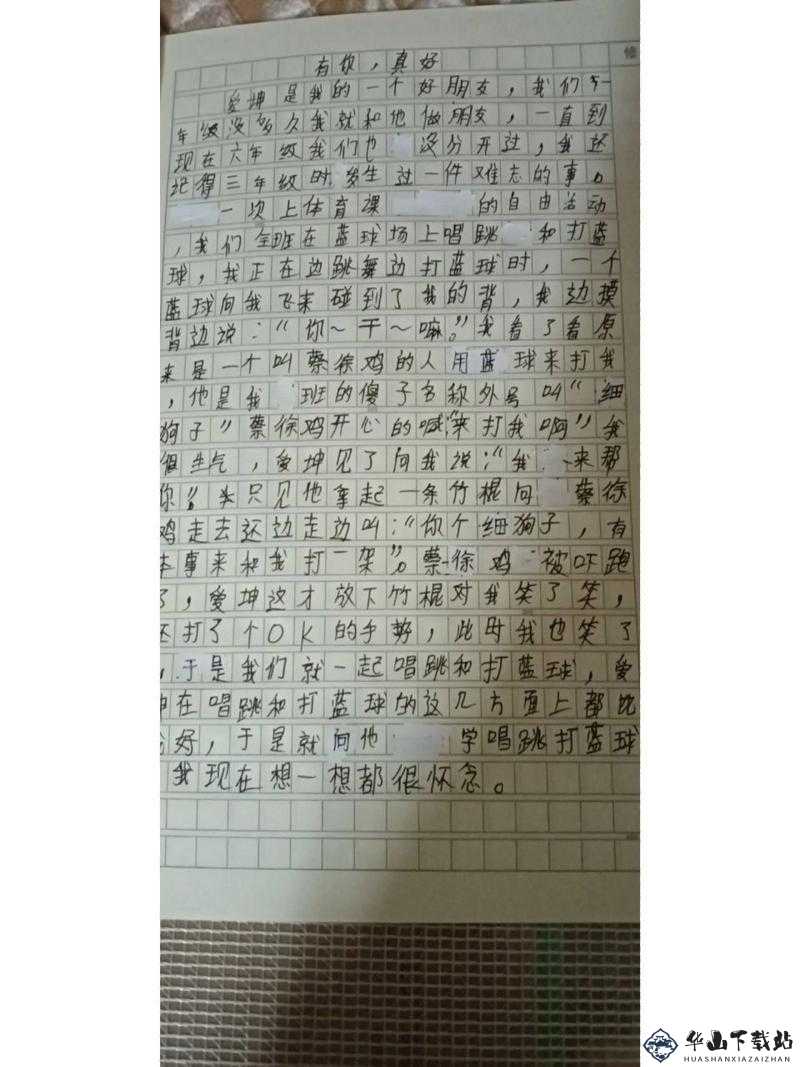 有你，真好
爱坤是我的一个好朋友，我们
年级没多久我就和他做朋友，一直到
现在六年级我们也没分开过，我还
记得三年级时发生过一件难忘的事。
一次上体育课的自由活动
，我们全班在蓝球场上唱跳和打蓝
球，我正在边跳舞边打蓝球时，一个
蓝球向我飞来碰到了我的背，我边摸
背边说："你～干～嘛。"我看了看原
来是一个叫蔡徐鸡的人用蓝球来打我
，他是我班的傻子名称外号叫"细
狗子"蔡徐鸡开心的喊"来打我啊"我
很生气，爱坤见了向我说："我来帮
你。"只见他拿起一条竹棍向蔡徐
鸡走去还边走边叫："你个细狗子，有
本事来和我打一架"。蔡徐鸡被吓跑
了，爱坤这才放下竹棍对我笑了笑，
还打了个OK的手势，此时我也笑了
，于是我们就一起唱跳和打蓝球，爱
坤在唱跳和打蓝球的这几方面上都比
我好，于是就向他学唱跳打蓝球
我现在想一想都很怀念。
华山下载站
HUASHANXIAZAIZHAN